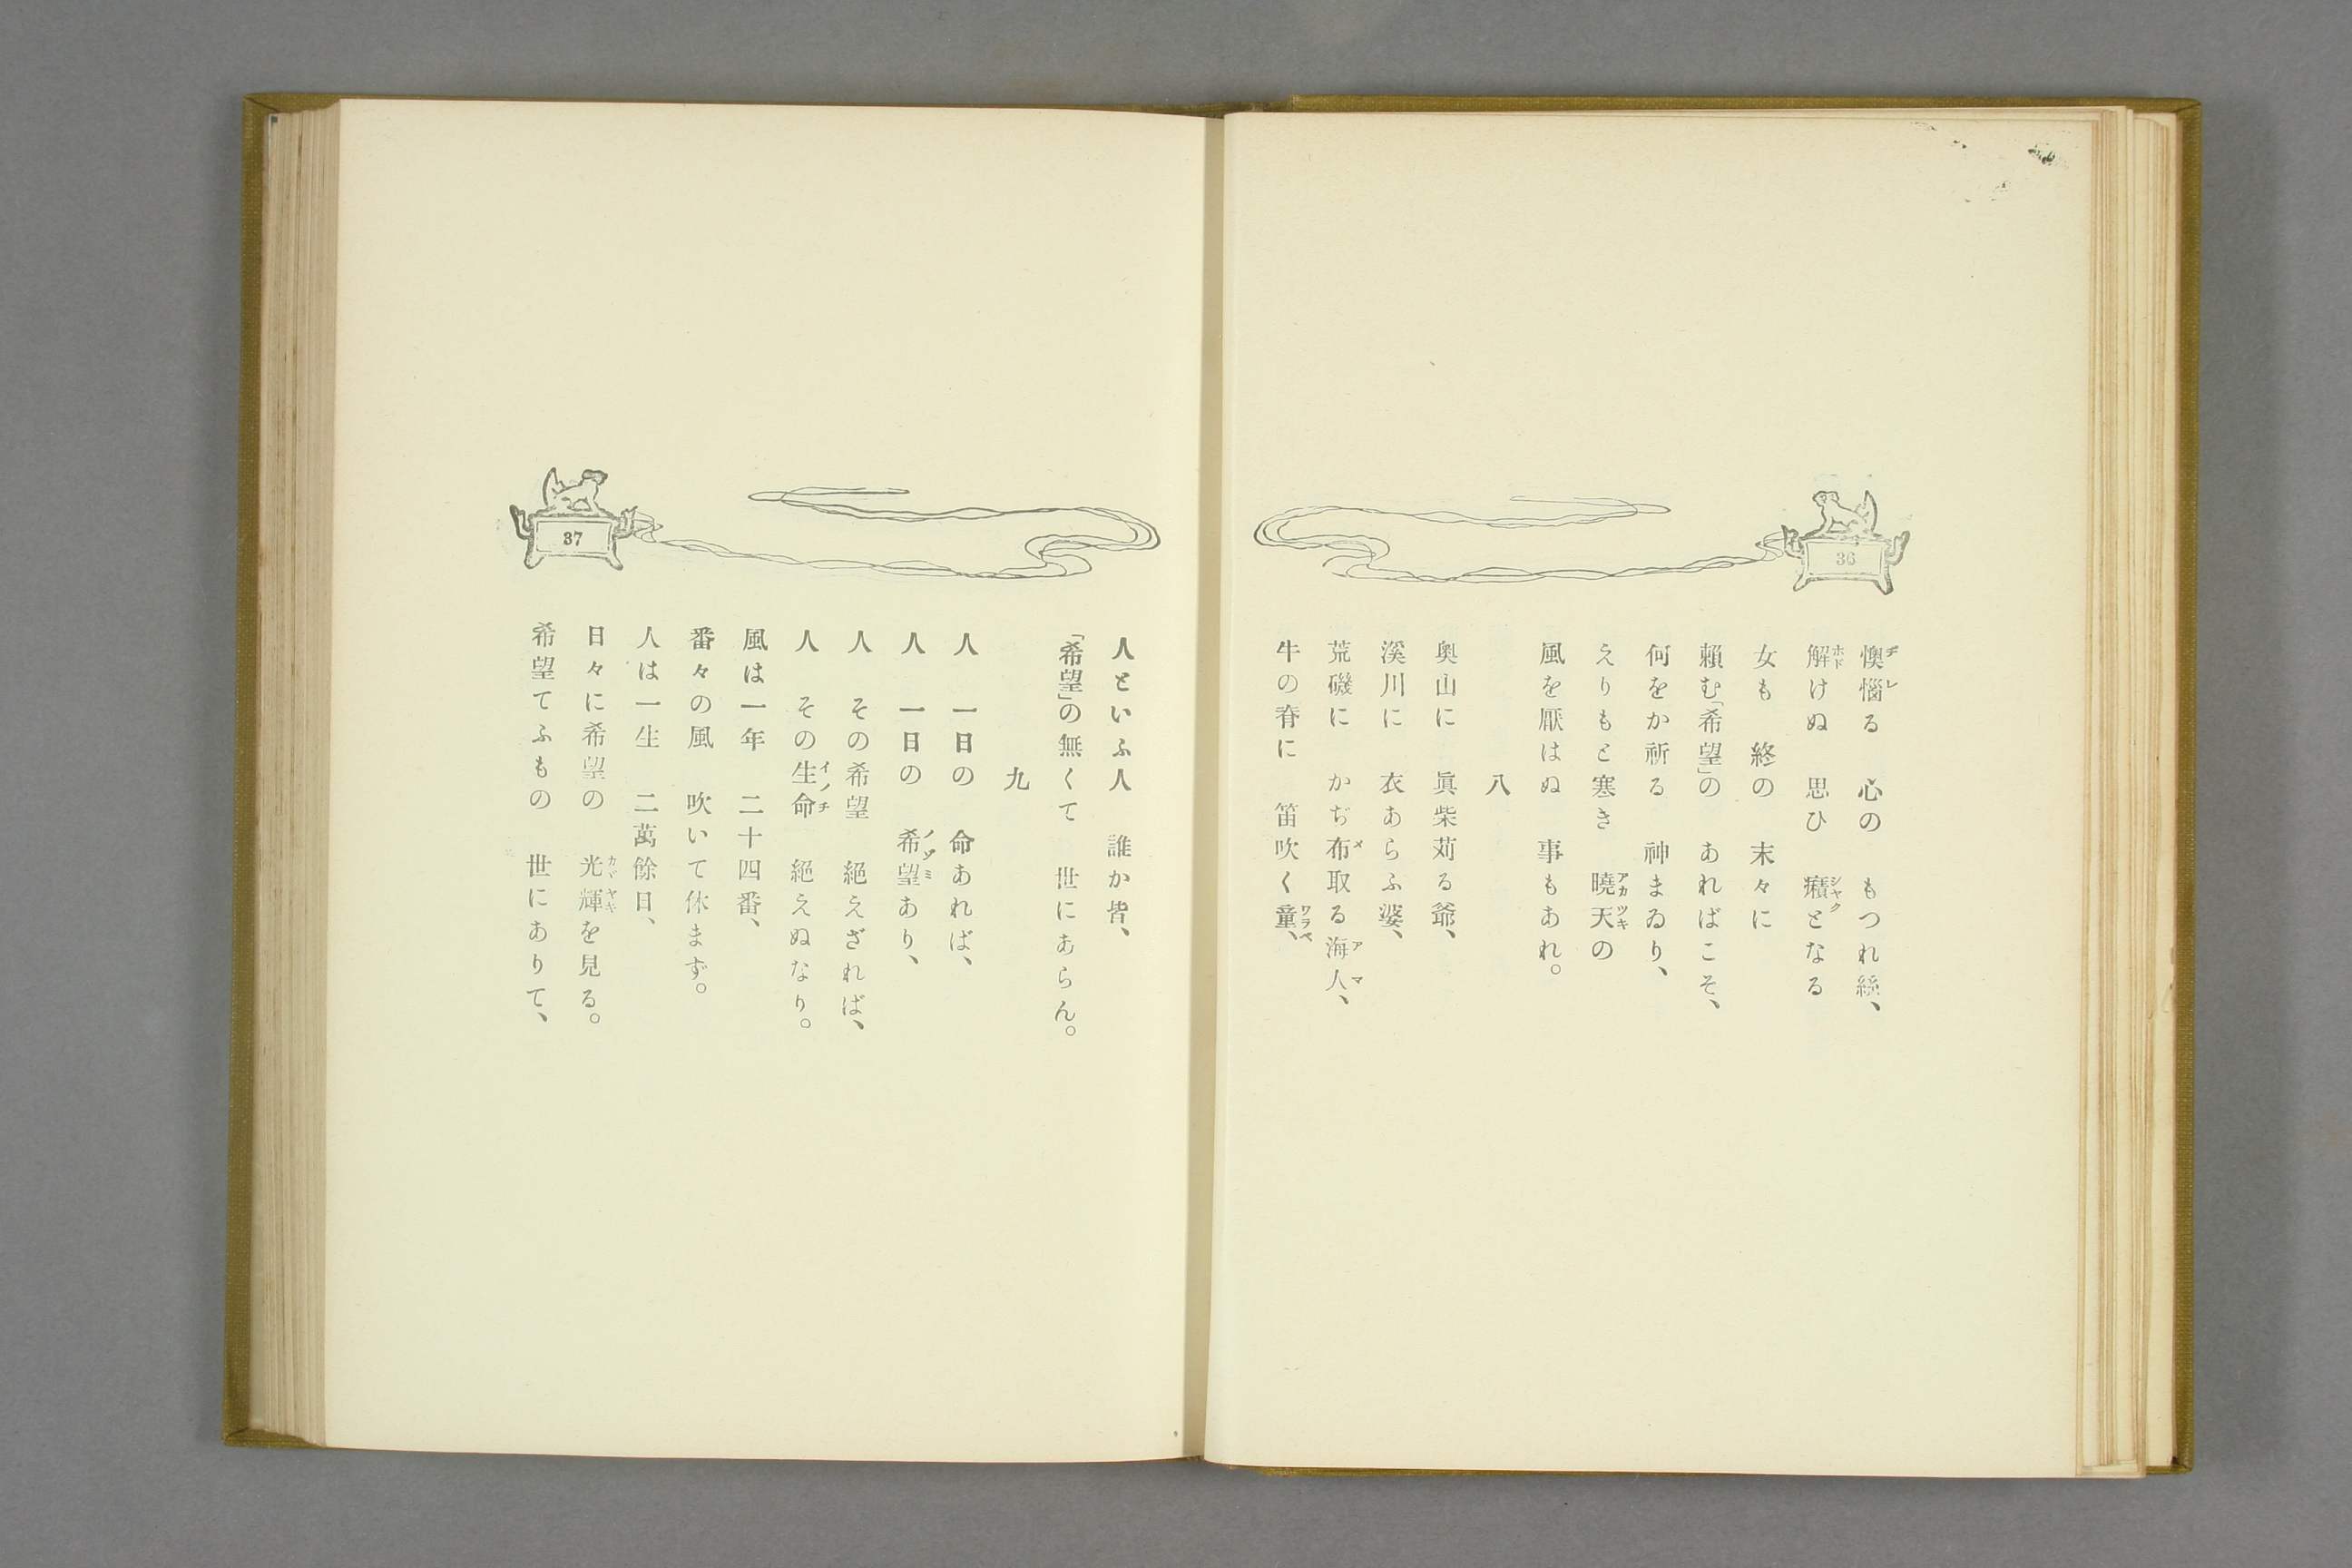 36
懊惱る　心の　もつれ絲、
解けぬ　思ひ　癪となる
女も　終の　末々に
賴む「希望」の　あればこそ、
何をか祈る　神まゐり、
えりもと寒き　曉天の
風を厭はぬ　事もあれ。
八
奥山に　眞柴苅る爺、
溪川に　衣あらふ婆、
荒磯に　かぢ布取る海人、
牛の脊に　笛吹く童、
37
人といふ人　誰か皆、
「希望」の無くて　世にあらん。
九
人　一日の　命あれば、
人　一日の　希望あり、
人　その希望　絕えざれば、
人　その生命　絕えぬなり。
風は一年　二十四番、
番々の風　吹いて休まず。
人は一生　二萬餘日、
日々に希望の　光輝を見る。
希望てふもの　世にありて、